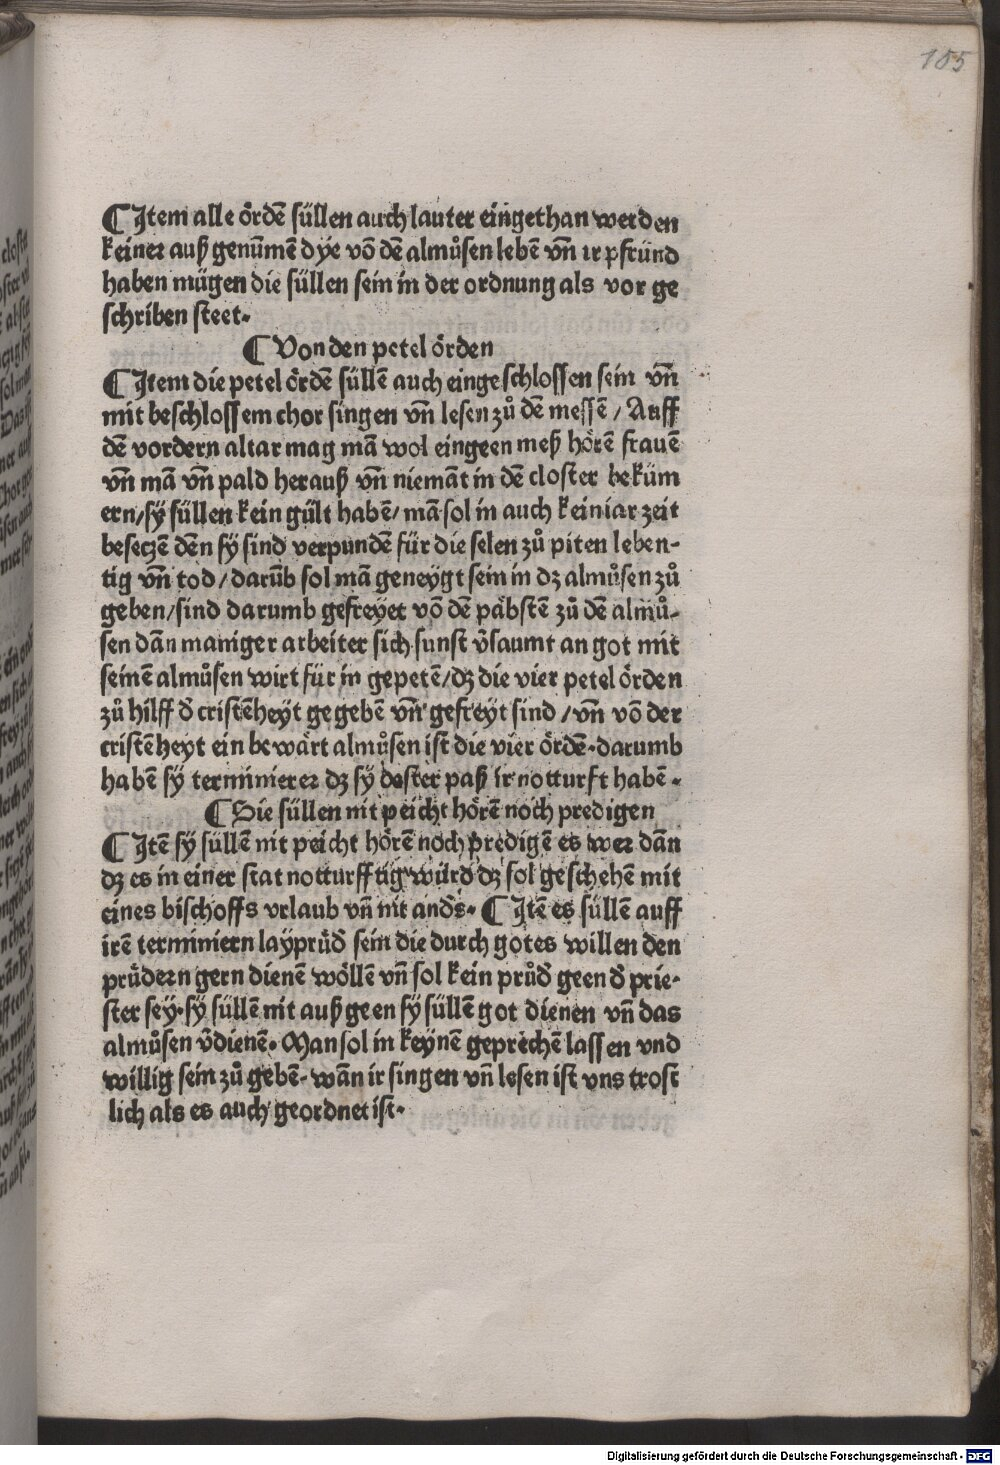 105
¶ Item alle ördē süllen auch lauter eingethan werden
keiner auß genūmē dye vō dē almůsen lebē vn̄ ir pfründ
haben mügen die süllen sein in der ordnung als vor ge
schriben steet.
¶ Von den petel örden
¶ Item die petel ördē süllē auch eingeschlossen sein vn̄
mit beschlossem chor singen vn̄ lesen zů dē messē / Auff
dē vordern altar mag mā wol eingeen meß hörē frauē
vn̄ mā vn̄ pald herauß vn̄ niemāt in dē closter bekům
ern / sy süllen kein gült habē / mā sol in auch kein iar zeit
beseczē dēn sy sind verpundē für die selen zů piten leben-
tig vn̄ tod / darūb sol mā geneygt sein in dz almůsen zů
geben / sind darumb gefreyet vō dē päbstē zů dē almů-
sen dān maniger arbeiter sich sunst v̄saumt an got mit
seinē almůsen wirt für in gepetē / dz die vier petel örden
zů hilff d̄ cristēheyt gegebē vn̄ gefreyt sind / vn̄ vō der
cristēheyt ein bewärt almůsen ist die vier ördē. darumb
habē sy terminierer dz sy dester paß ir notturft habē.
¶ Sie süllen nit peicht hörē noch predigen
¶ Itē sy süllē nit peicht hörē noch predigē es wer dān
dz es in einer stat notturfftig würd dz sol geschehē mit
eines bischoffs vrlaub vn̄ nit anders. ¶ Itē es süllē auff
irē terminiern layprüd̄ sein die durch gotes willen den
prüdern gern dienē wöllē vn̄ sol kein průd̄ geen d̄ prie-
ster sey. sy süllē nit außgeen sy süllē got dienen vn̄ das
almůsen v̄dienē. Man sol in keynē geprechē lassen vnd
willig sein zů gebē. wān ir singen vn̄ lesen ist vns trost
lich als es auch geordnet ist.
Digitalisierung gefördert durch die Deutsche Forschungsgemeinschaft - DFG